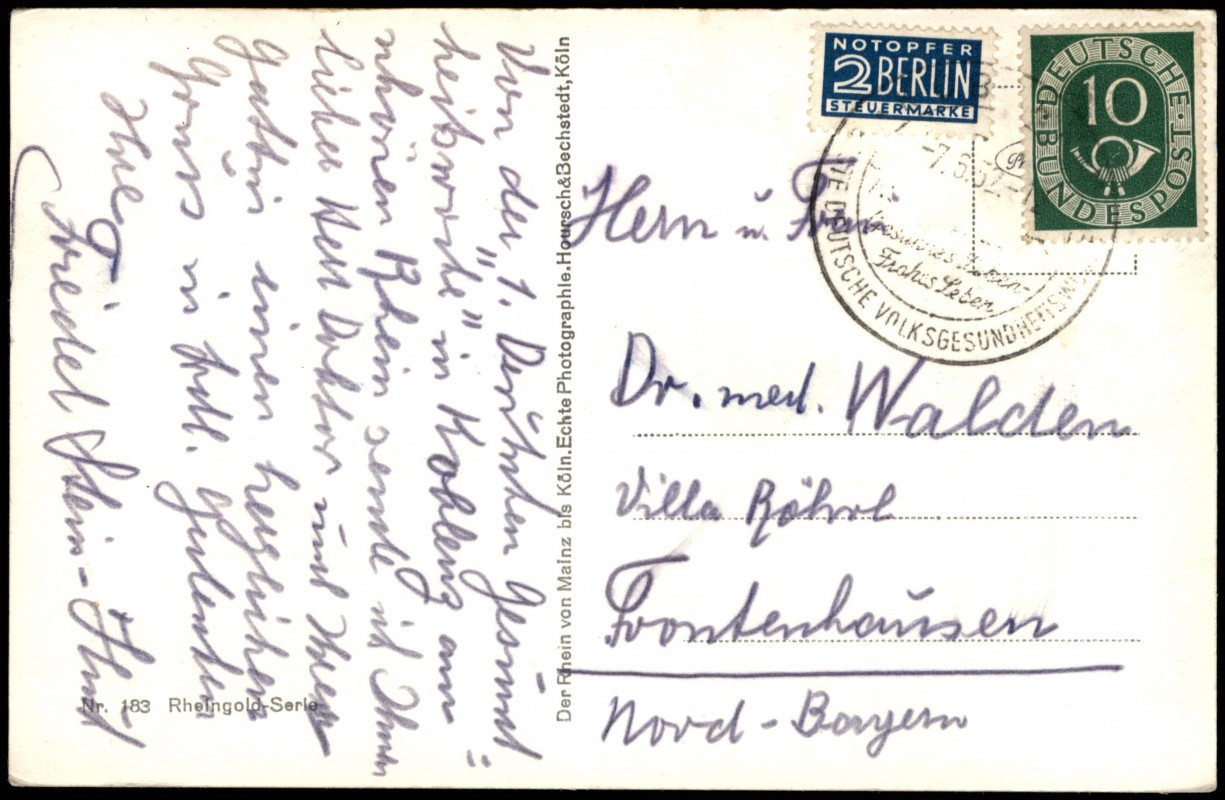 Von der „1. Deutschen Gesund-
heitswoche" in Koblenz am
schönen Rhein sende ich Ihnen
lieber Herr Doktor und Ihrer
Gattin einen herzlichen
Gruss in
Ihre
Friedel Stein-
Nr. 183 Rheingold-Serie
Der Rhein von Mainz bis Köln. Echte Photographie. Hoursch & Bechstedt, Köln
NOTOPFER
2 BERLIN
STEUERMARKE
DEUTSCHE BUNDESPOST
10
-7.6.52.-12
Gesundes
Frohes Leben
DEUTSCHE VOLKSGESUNDHEITSW
Herrn u. Frau
Dr. med. Walden
Villa Röhrl
Frontenhausen
Nord-Bayern